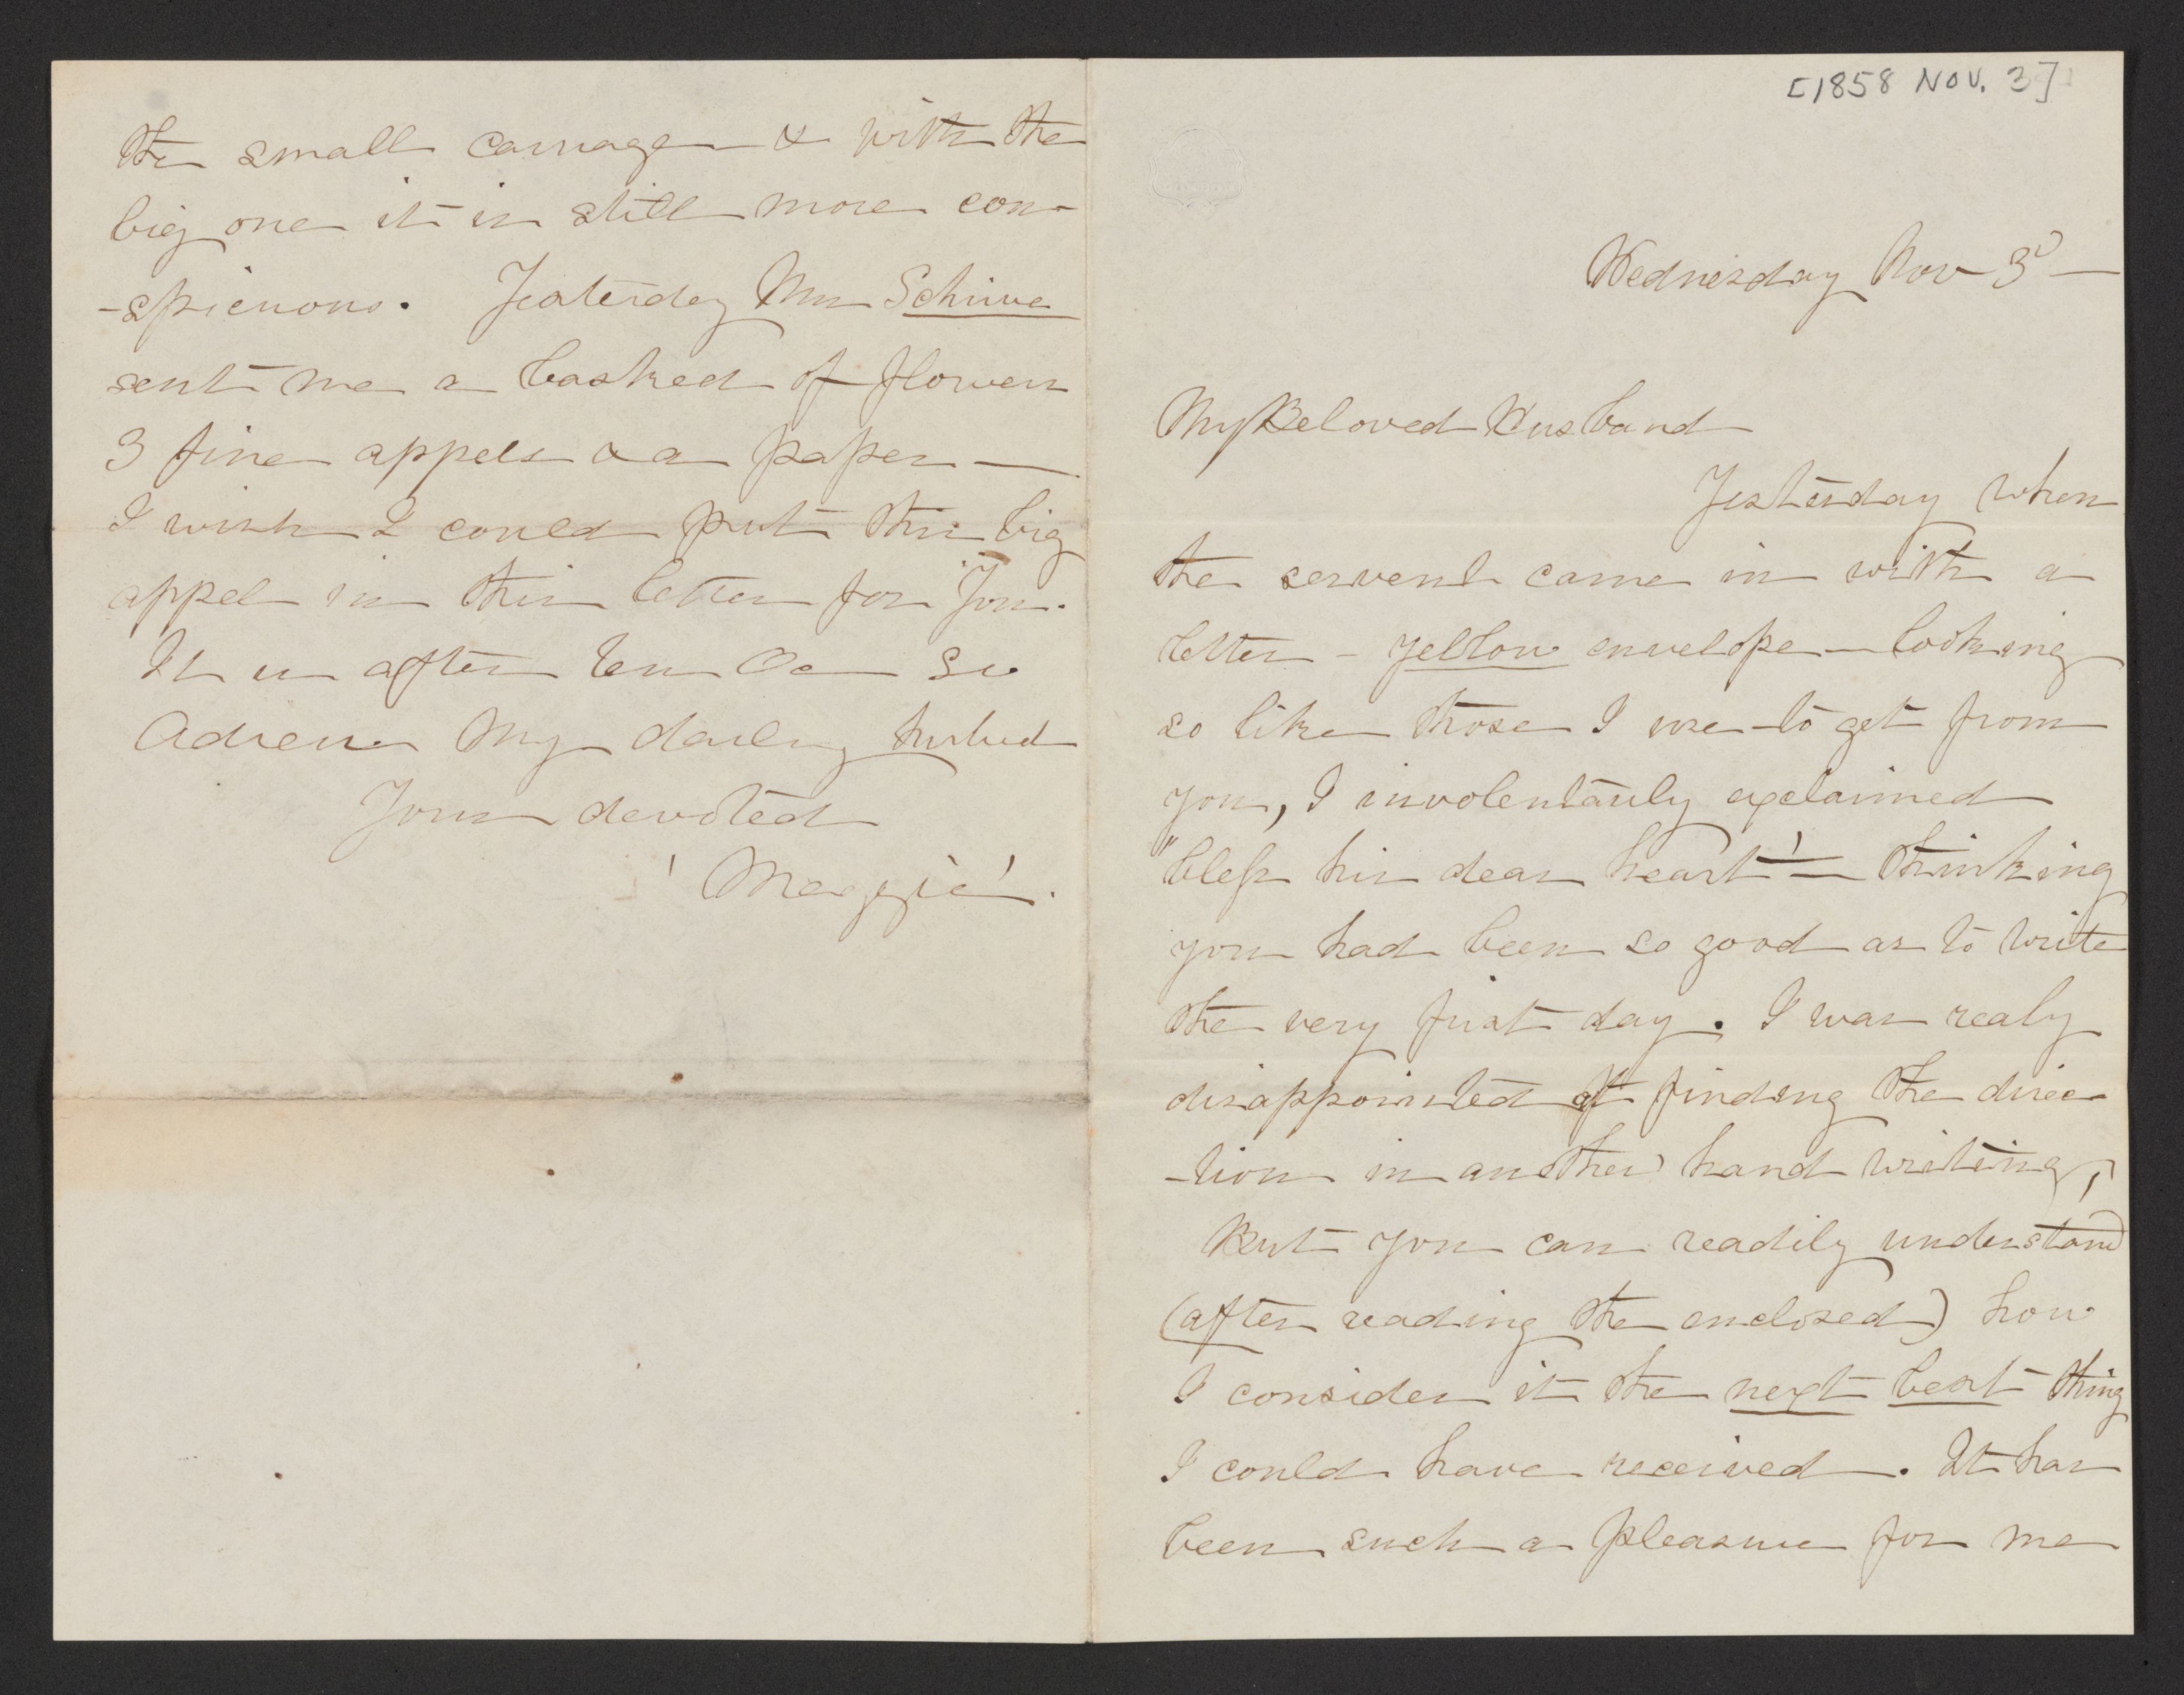 [1858 NOV. 3]
Wednesday Nov 3d —
My Beloved Husband
Yesterday when
the servent came in with a
letter - yellow envelope - looking
so like those I use to get from
you, I involentarily exclaimed
"bless his dear heart'! — thinking
you had been so good as to write
the very first day. I was realy
disappointed at finding the direc-
-tion in another hand writing,
But you can readily understand
(after reading the enclosed) how
I consider it the next best thing
I could have received. It has
been such a pleasure for me
the small carriage & with the
big one it is still more con-
-spicuous. Yesterday Mrs
sent me a basked of flowers
3 fine appels & a paper —
I wish I could put this big
appel in this letter for You.
It is after ten Oc So
Adieu My darling
Your devoted
'Maggie'.